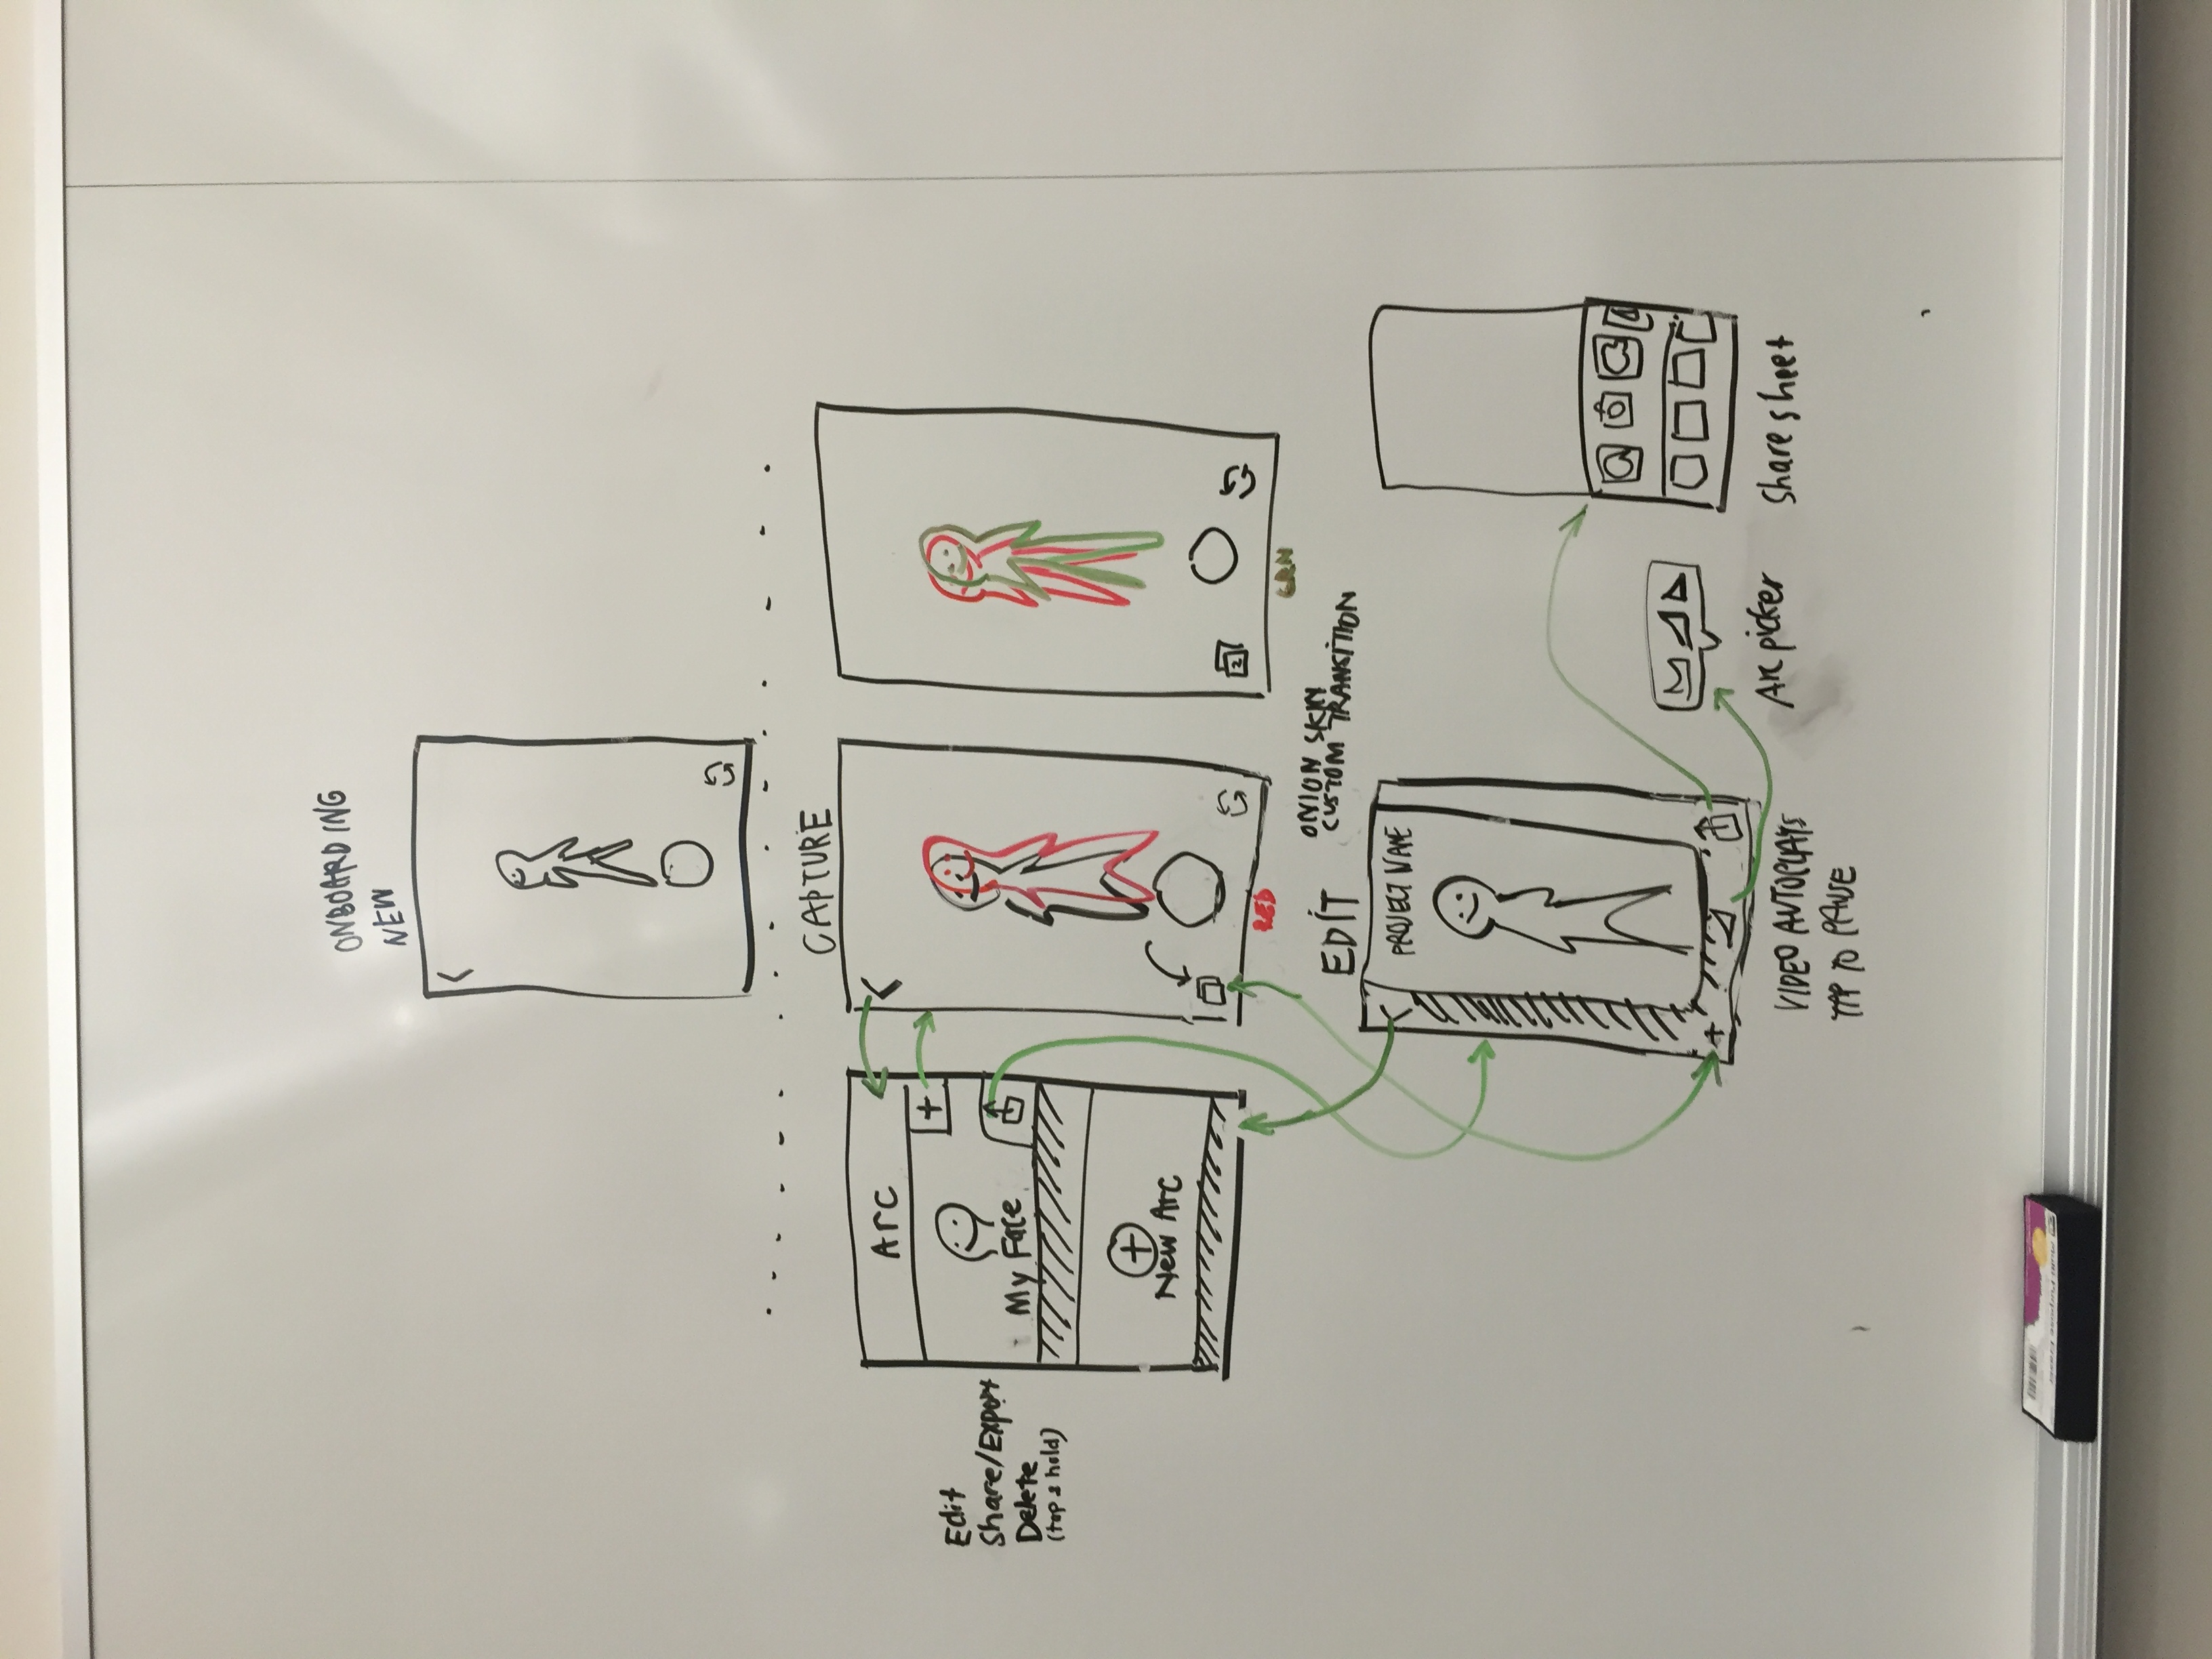 ONBOARDING
NEW
CAPTURE
Arc
My Face
New Arc
Edit
Share/Export
Delete
(tap & hold)
2
RED
GRN
ONION SKIN
CUSTOM TRANSITION
EDIT
PROJECT NAME
VIDEO AUTOPLAYS
TAP TO PAUSE
Arc picker
Share sheet
Multi-Purpose Eraser